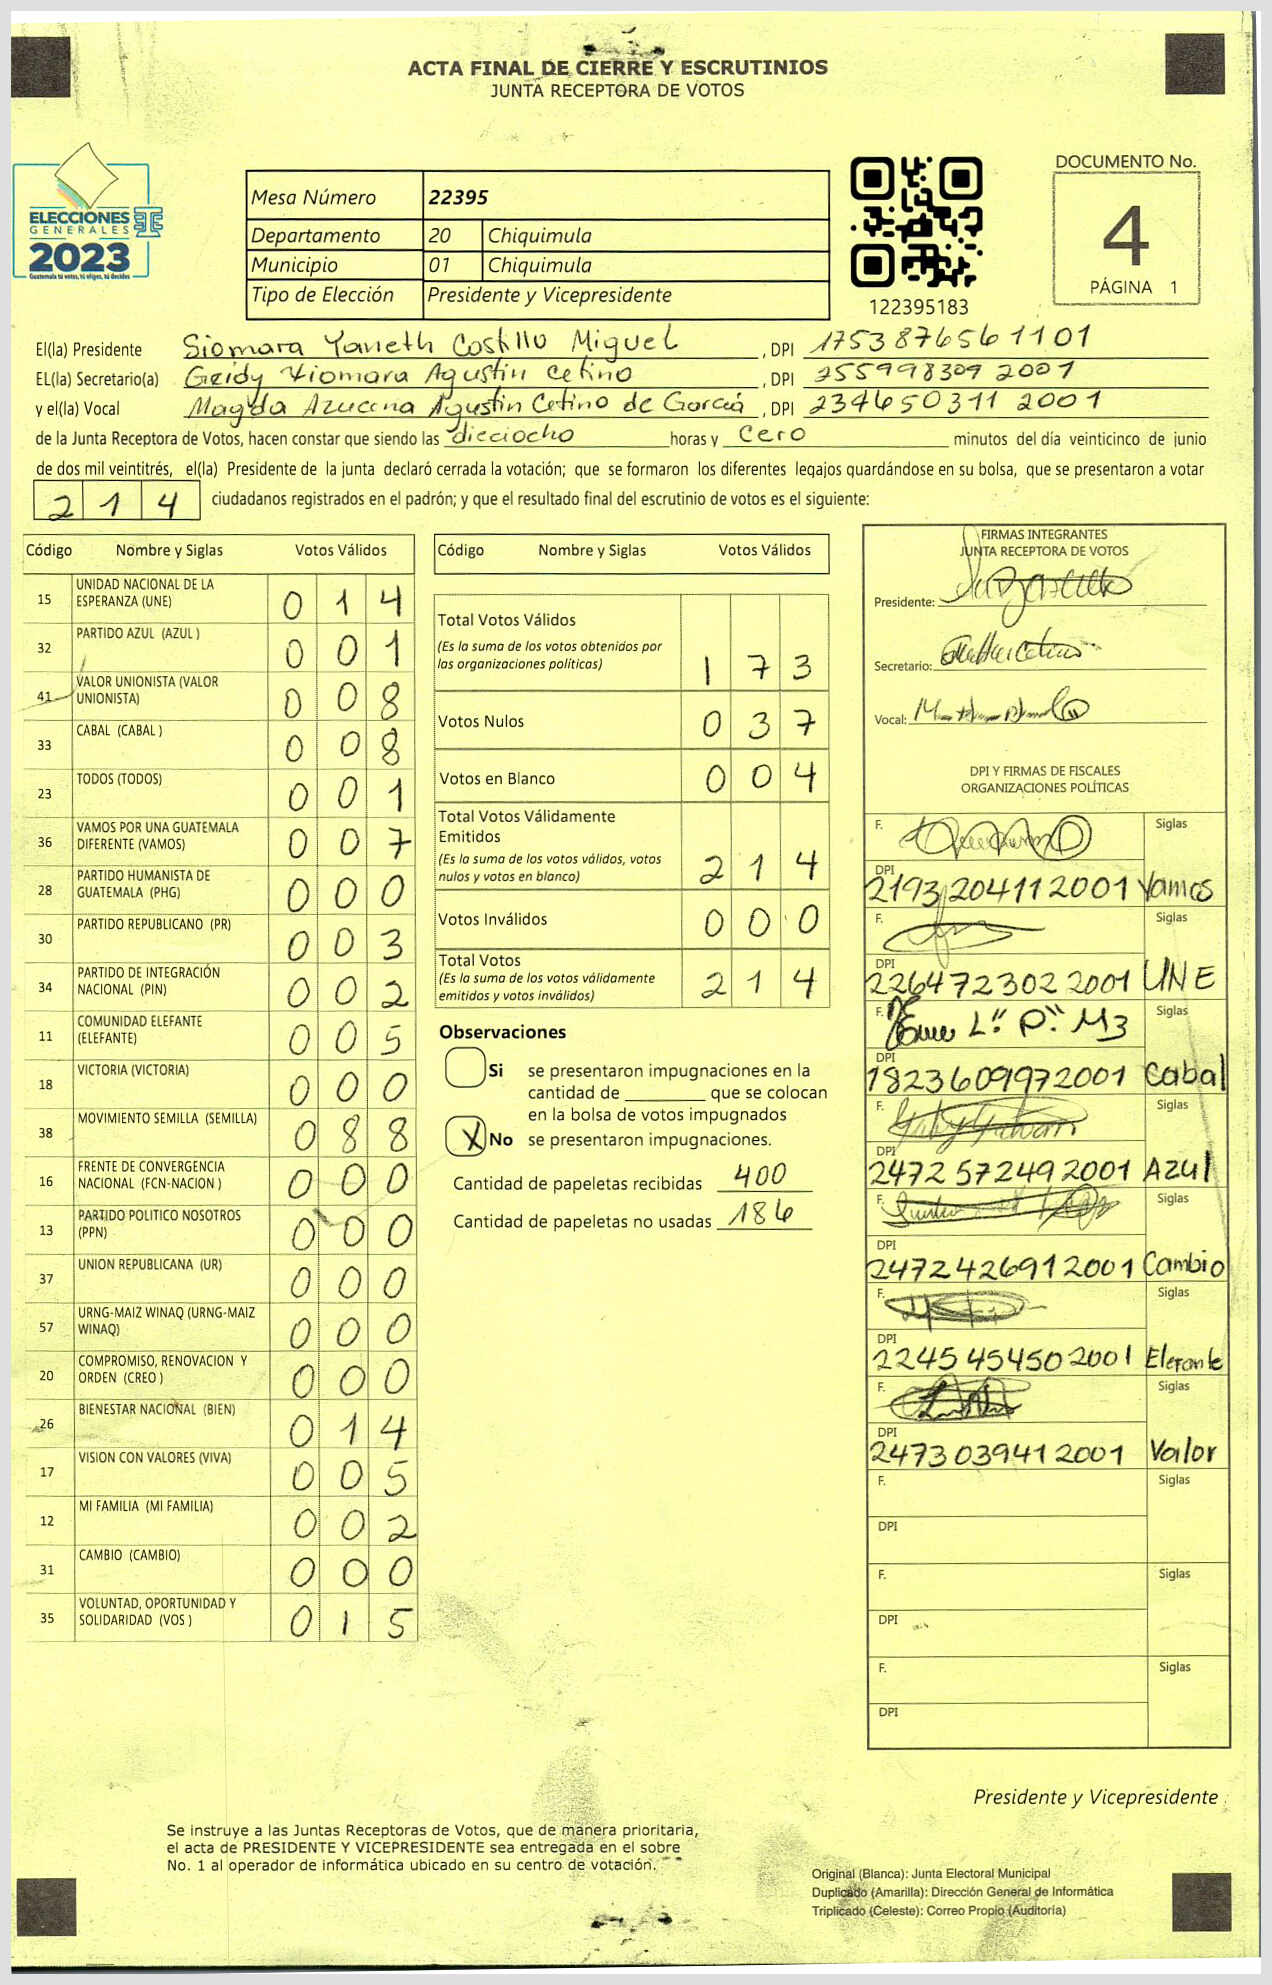 ACTA FINAL DE CIERRE Y ESCRUTINIOS
JUNTA RECEPTORA DE VOTOS
ELECCIONES
GENERALES
2023
Guatemala tú votas, tú eliges, tú decides
Mesa Número 22395
Departamento 20 Chiquimula
Municipio 01 Chiquimula
Tipo de Elección Presidente y Vicepresidente
122395183
DOCUMENTO No.
4
PÁGINA 1
El(la) Presidente Siomara Yaneth Costillo Miguel, DPI 1753876561101
EL(la) Secretario(a) Geidy Xiomara Agustin Cetino, DPI 255998309 2001
y el(la) Vocal Magda Azucena Agustin Cetino de García, DPI 234650311 2001
de la Junta Receptora de Votos, hacen constar que siendo las dieciocho horas y cero minutos del día veinticinco de junio
de dos mil veintitrés, el(la) Presidente de la junta declaró cerrada la votación; que se formaron los diferentes legajos quardándose en su bolsa, que se presentaron a votar
214 ciudadanos registrados en el padrón; y que el resultado final del escrutinio de votos es el siguiente:
Código Nombre y Siglas Votos Válidos
15 UNIDAD NACIONAL DE LA
ESPERANZA (UNE) 014
32 PARTIDO AZUL (AZUL ) 001
41 VALOR UNIONISTA (VALOR
UNIONISTA) 008
33 CABAL (CABAL ) 008
23 TODOS (TODOS) 001
36 VAMOS POR UNA GUATEMALA
DIFERENTE (VAMOS) 007
28 PARTIDO HUMANISTA DE
GUATEMALA (PHG) 000
30 PARTIDO REPUBLICANO (PR) 003
34 PARTIDO DE INTEGRACIÓN
NACIONAL (PIN) 002
11 COMUNIDAD ELEFANTE
(ELEFANTE) 005
18 VICTORIA (VICTORIA) 000
38 MOVIMIENTO SEMILLA (SEMILLA) 088
16 FRENTE DE CONVERGENCIA
NACIONAL (FCN-NACION ) 000
13 PARTIDO POLITICO NOSOTROS
(PPN) 000
37 UNION REPUBLICANA (UR) 000
57 URNG-MAIZ WINAQ (URNG-MAIZ
WINAQ) 000
20 COMPROMISO, RENOVACION Y
ORDEN (CREO ) 000
26 BIENESTAR NACIONAL (BIEN) 014
17 VISION CON VALORES (VIVA) 005
12 MI FAMILIA (MI FAMILIA) 002
31 CAMBIO (CAMBIO) 000
35 VOLUNTAD, OPORTUNIDAD Y
SOLIDARIDAD (VOS ) 015
Código Nombre y Siglas Votos Válidos
Total Votos Válidos
(Es la suma de los votos obtenidos por
las organizaciones políticas) 173
Votos Nulos 037
Votos en Blanco 004
Total Votos Válidamente
Emitidos
(Es la suma de los votos válidos, votos
nulos y votos en blanco) 214
Votos Inválidos 000
Total Votos
(Es la suma de los votos válidamente
emitidos y votos inválidos) 214
Observaciones
Si se presentaron impugnaciones en la
cantidad de ________ que se colocan
en la bolsa de votos impugnados
X No se presentaron impugnaciones.
Cantidad de papeletas recibidas 400
Cantidad de papeletas no usadas 186
FIRMAS INTEGRANTES
JUNTA RECEPTORA DE VOTOS
Presidente:
Secretario:
Vocal:
DPI Y FIRMAS DE FISCALES
ORGANIZACIONES POLÍTICAS
F. Siglas
DPI
2193 20411 2001 Vamos
F. Siglas
DPI
226472302 2001 UNE
F. Siglas
DPI
1823609972001 Cabal
F. Siglas
DPI
2472 57249 2001 Azul
F. Siglas
DPI
2472426912001 Cambio
F. Siglas
DPI
2245 45450 2001 Elefante
F. Siglas
DPI
2473 03941 2001 Valor
F. Siglas
DPI
F. Siglas
DPI
F. Siglas
DPI
Presidente y Vicepresidente
Se instruye a las Juntas Receptoras de Votos, que de manera prioritaria,
el acta de PRESIDENTE Y VICEPRESIDENTE sea entregada en el sobre
No. 1 al operador de informática ubicado en su centro de votación.
Original (Blanca): Junta Electoral Municipal
Duplicado (Amarilla): Dirección General de Informática
Triplicado (Celeste): Correo Propio (Auditoría)